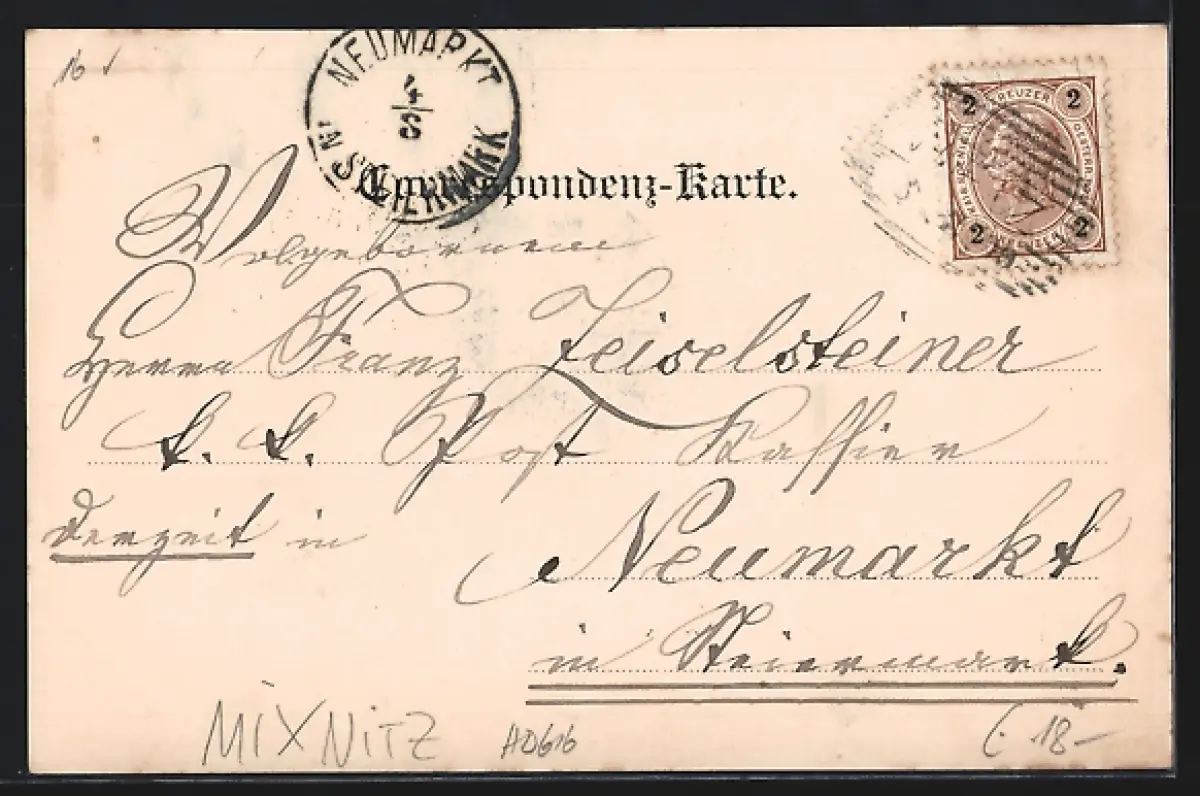 16
NEUMARKT
4/8
IN STEIERMARK
2 KREUZER 2
2 2
Correspondenz-Karte.
Wolgeborenen
Herrn Franz Zeiselsteiner
k. k. Post Kassier
derzeit in
Neumarkt
in Steiermark.
MIXNITZ AD616 18-